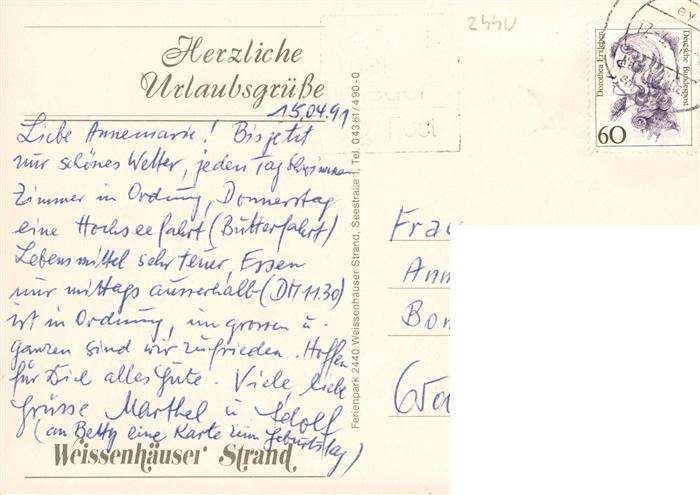 Herzliche
Urlaubsgrüße
15.04.91
Liebe Annemarie! Bis jetzt
nur schönes Wetter, jeden Tag schwimmen
Zimmer in Ordnung, Donnerstag
eine Hochseefahrt (Butterfahrt)
Lebensmittel sehr teuer, Essen
nur mittags ausserhalb (DM 11.30)
ist in Ordnung, im grossen u.
ganzen sind wir zufrieden. Hoffen
für Dich alles Gute. Viele liebe
Grüsse Marthel u. Adolf
(an Betty eine Karte zum Geburtstag)
Weissenhäuser Strand
Ferienpark 2440 Weissenhäuser Strand, Seestraße 1, Tel. 04361/490-0
2440
Dorothea Erxleben
Deutsche Bundespost
60
Frau
Ann
Bon